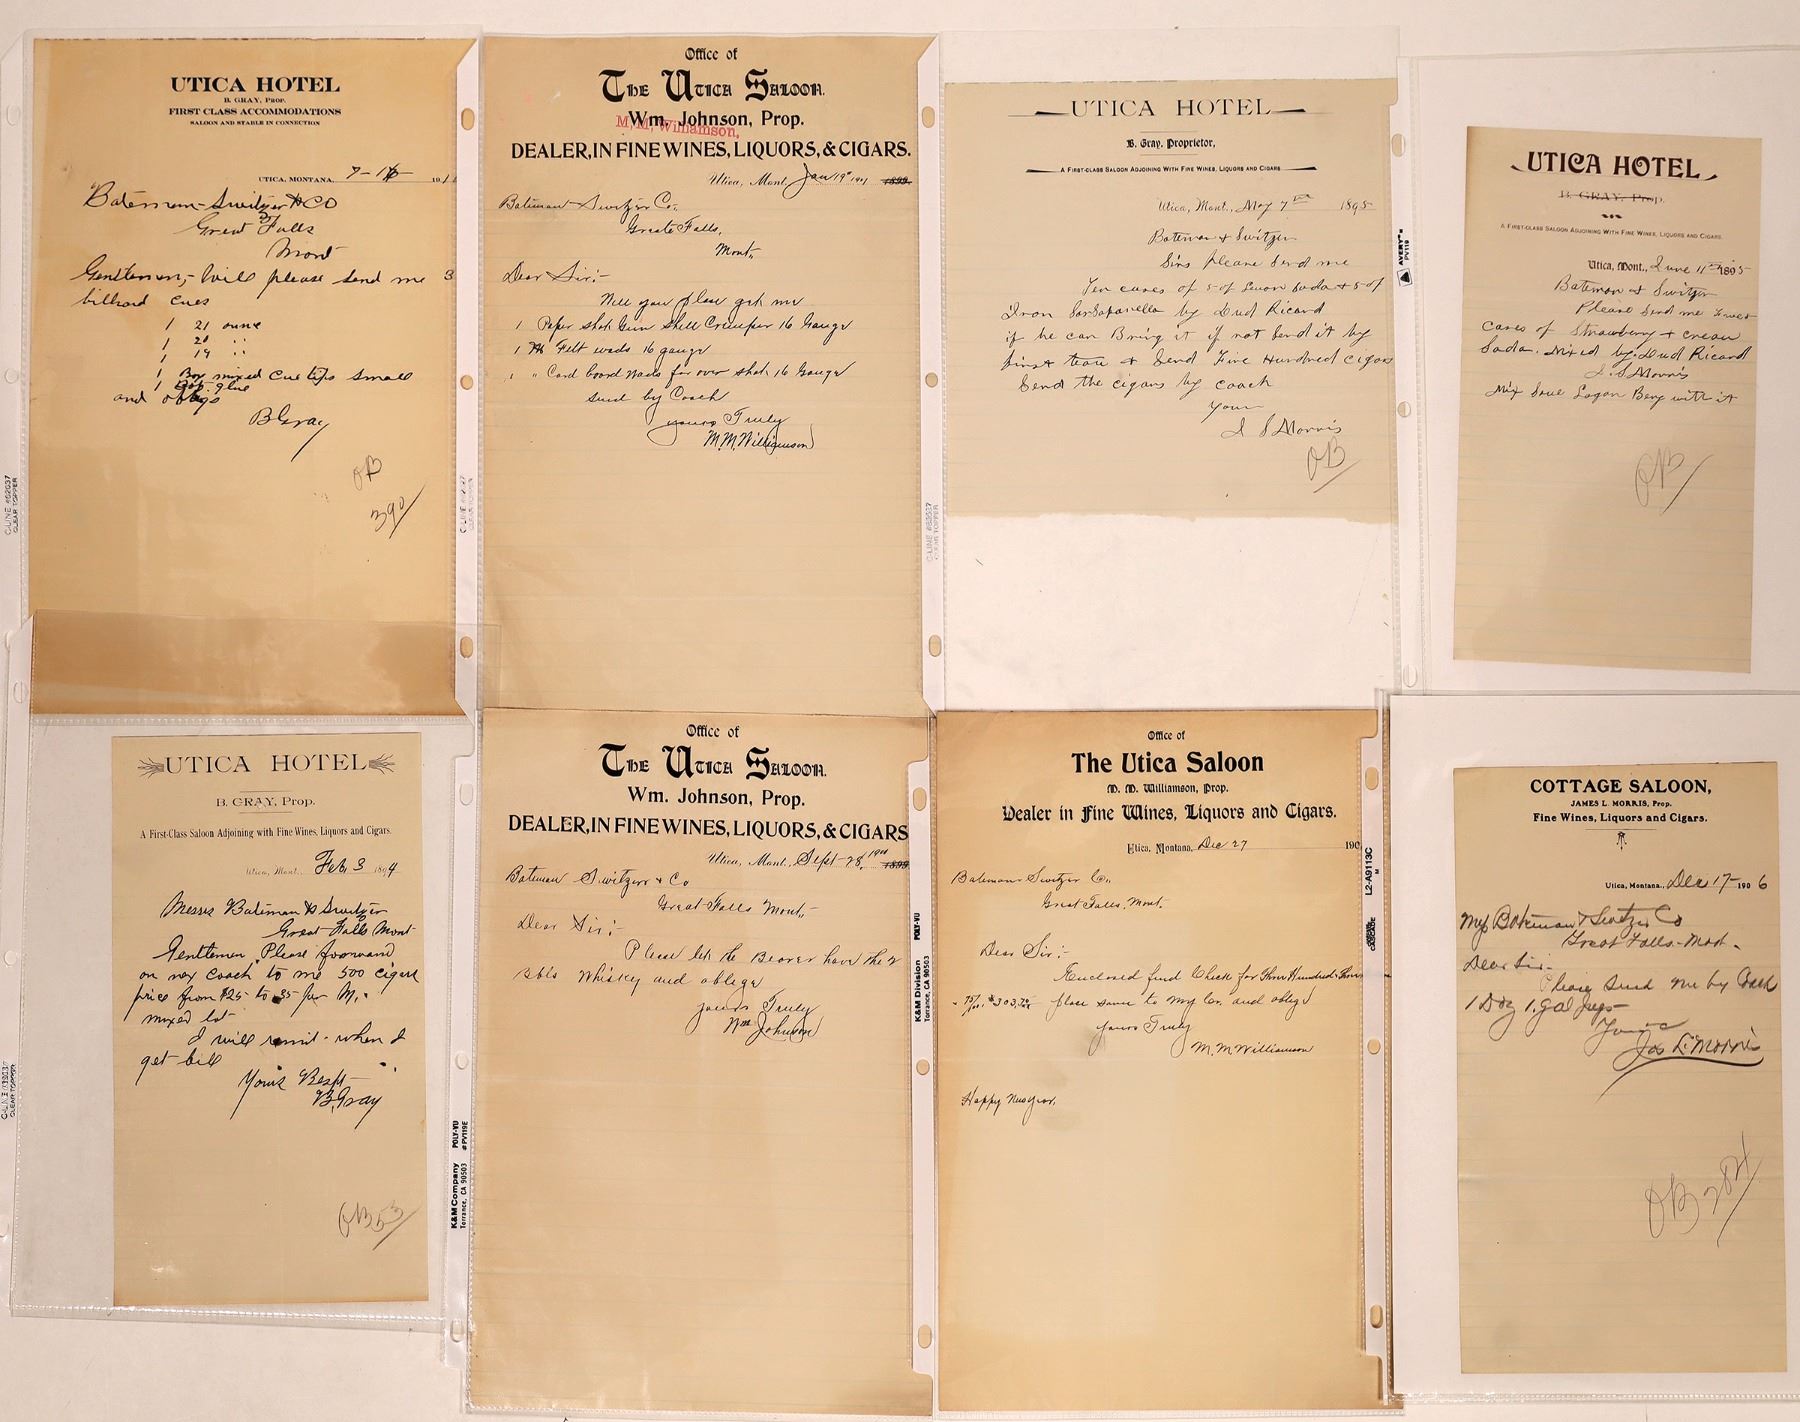 UTICA HOTEL
B. GRAY, PROP.
FIRST CLASS ACCOMMODATIONS
SALOON AND STABLE IN CONNECTION
UTICA, MONTANA, 7-16 191
Bateman-Switzer & CO
Great Falls
Mont
Gentlemen,- Will please send me 3
billiard cues
1 21 ounc
1 20 "
1 19 "
1 Box mixed cue tips small
1 Bot. glue
and oblg's
B Gray
OB
390/
Office of
The Utica Saloon.
Wm. Johnson, Prop.
M. M. Williamson,
DEALER, IN FINE WINES, LIQUORS, & CIGARS.
Utica, Mont. Jan 19th 1901 1899.
Bateman Switzer Co.,
Greate Falls,
Mont.
Dear Sir:-
Will you please get me
1 Paper shot Gun Shell Crimper 16 Gauge
1 M Felt wads 16 gauge
1 " Card board wads for over shot 16 Gauge
send by Coach
yours Truly
M.M. Williamson
UTICA HOTEL
B. Gray, Proprietor,
A FIRST-CLASS SALOON ADJOINING WITH FINE WINES, LIQUORS AND CIGARS
Utica, Mont., May 7th 1895
Bateman & Switzer
Sirs please send me
Ten cases of 5 of Soda & 5 of
Iron Sarsaparella by Dud Ricard
if he can Bring it if not send it by
first team & Send Five Hundred cigars
Send the cigars by coach
Yours
J S Morris
OB
UTICA HOTEL
B. GRAY, Prop.
A FIRST-CLASS SALOON ADJOINING WITH FINE WINES, LIQUORS AND CIGARS.
Utica, Mont., June 11th 1895
Bateman & Switzer
Please send me
cases of Strawberry & cream
Soda. Mixed by Dud Ricard
J. S Morris
Mix some Logan Bery with it
OB
UTICA HOTEL
B. GRAY, Prop.
A First-Class Saloon Adjoining with Fine Wines, Liquors and Cigars.
Utica, Mont., Feb, 3 1894
Messrs Bateman & Switzer
Great Falls Mont
Gentlemen, Please forward
on nex coach to me 500 cigars
price from $25 to 35 per M,.
mixed lot
I will remit- when I
get bill
Yours Respt
B. Gray
OB 53/
Office of
The Utica Saloon.
Wm. Johnson, Prop.
DEALER, IN FINE WINES, LIQUORS, & CIGARS
Utica, Mont., Sept-28, 1900 1899
Bateman Switzer & Co
Great Falls Mont,-
Dear Sir:-
Please let the Bearer have the 2
Bbls Whiskey and oblege
yours Truly
Wm Johnson
Office of
The Utica Saloon
M. M. Williamson, Prop.
Dealer in Fine Wines, Liquors and Cigars.
Utica, Montana, Dec 27 190
Bateman Switzer Co.,
Great Falls, Mont.
Dear Sir:-
Enclosed find Check for Three Hundred & Three
75/100 $303,75 place same to my Cr. and oblege
yours Truly
M. M Williamson
Happy New year,
COTTAGE SALOON,
JAMES L. MORRIS, Prop.
Fine Wines, Liquors and Cigars.
Utica, Montana., Dec 17- 1906
Bateman & Switzer Co
Great Falls-Mont-
Dear Sir-
Please Send me by Coach
1 Doz 1 gal Jugs-
Yours
Jas L. Morris
OB 284
C-LINE #62037
CLEAR TOPPER
AVERY®
PV119
K&M Company POLY-VU
Torrance, CA 90503 #PV119E
K&M Division POLY-VU
Torrance, CA 90503
L2-A9113C